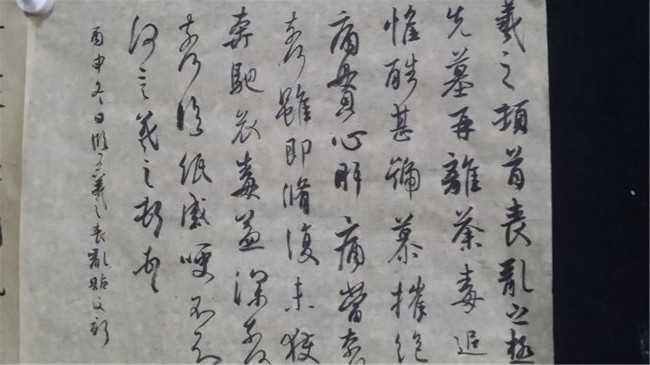 羲之頓首喪亂之極
先墓再離荼毒追
惟酷甚號慕摧絕
痛貫心肝痛當奈
奈何雖即脩復未獲
奔馳哀毒益深奈何
奈何臨紙感哽不知
何言羲之頓首
丙申冬日臨王羲之喪亂貼文